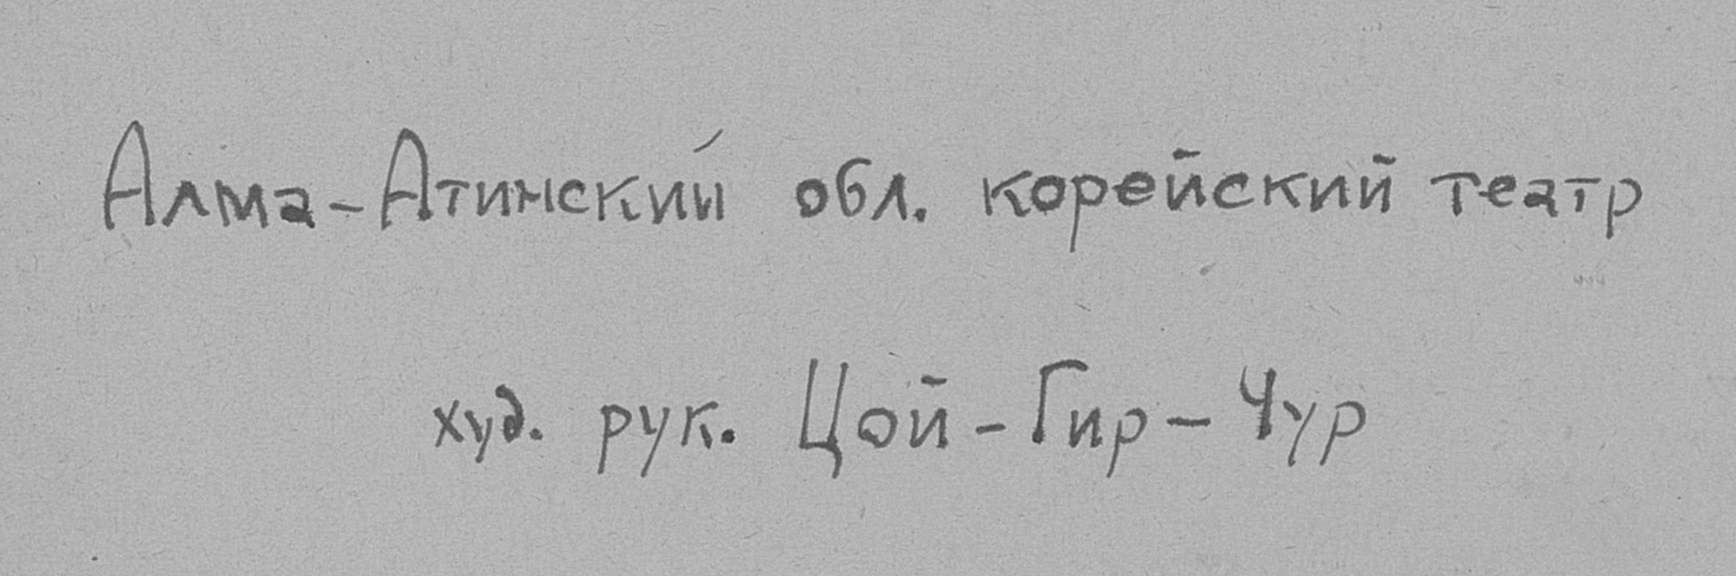 Алма-Атинский обл. корейский театр
худ. рук. Цой-Гир-Чур